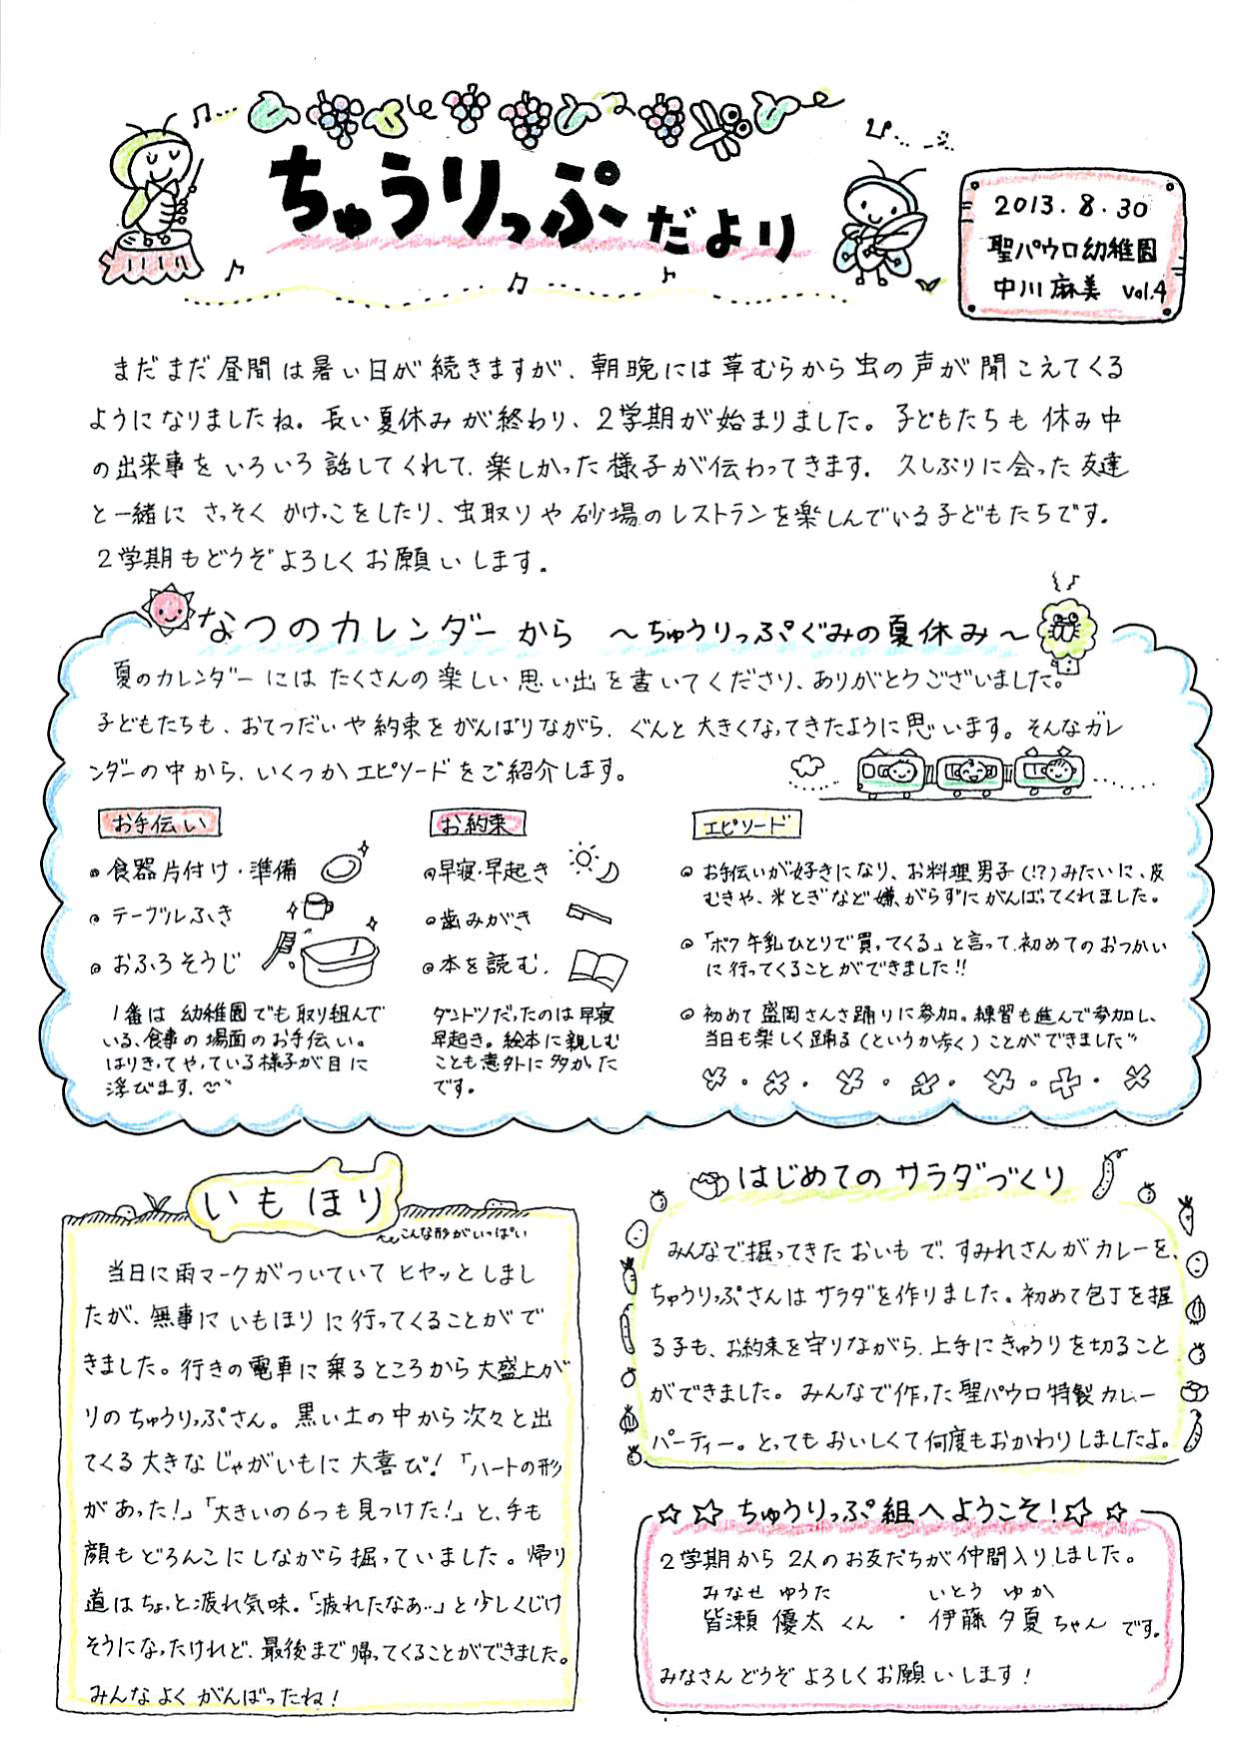 ちゅうりっぷだより
2013.8.30
聖パウロ幼稚園
中川麻美 vol.4
まだまだ昼間は暑い日が続きますが、朝晩には草むらから虫の声が聞こえてくる
ようになりましたね。長い夏休みが終わり、2学期が始まりました。子どもたちも休み中
の出来事をいろいろ話してくれて、楽しかった様子が伝わってきます。久しぶりに会った友達
と一緒にさっそくかけっこをしたり、虫取りや砂場のレストランを楽しんでいる子どもたちです。
2学期もどうぞよろしくお願いします。
なつのカレンダーから ～ちゅうりっぷぐみの夏休み～
夏のカレンダーにはたくさんの楽しい思い出を書いてくださり、ありがとうございました。
子どもたちも、おてつだいや約束をがんばりながら、ぐんと大きくなってきたように思います。そんなカレ
ンダーの中から、いくつかエピソードをご紹介します。
お手伝い
・食器片付け・準備
・テーブルふき
・おふろそうじ
1番は幼稚園でも取り組んで
いる、食事の場面のお手伝い。
はりきってやっている様子が目に
浮びます。
お約束
・早寝・早起き
・歯みがき
・本を読む。
ダントツだったのは早寝
早起き。絵本に親しむ
ことも意外に多かった
です。
エピソード
・お手伝いが好きになり、お料理男子(!?)みたいに、皮
むきや、米とぎなど嫌がらずにがんばってくれました。
・「ボク牛乳ひとりで買ってくる」と言って、初めてのおつかい
に行ってくることができました!!
・初めて盛岡さんさ踊りに参加。練習も進んで参加し、
当日も楽しく踊る(というか歩く)ことができました〃
いもほり
～こんな形がいっぱい
当日に雨マークがついていてヒヤッとしまし
たが、無事にいもほりに行ってくることがで
きました。行きの電車に乗るところから大盛上が
りのちゅうりっぷさん。黒い土の中から次々と出
てくる大きなじゃがいもに大喜び!「ハートの形
があった!」「大きいの6つも見つけた!」と、手も
顔もどろんこにしながら掘っていました。帰り
道はちょっと疲れ気味。「疲れたなあ‥」と少しくじけ
そうになったけれど、最後まで帰ってくることができました。
みんなよくがんばったね!
はじめてのサラダづくり
みんなで掘ってきたおいもで、すみれさんがカレーを、
ちゅうりっぷさんはサラダを作りました。初めて包丁を握
る子も、お約束を守りながら、上手にきゅうりを切ること
ができました。みんなで作った聖パウロ特製カレー
パーティー。とってもおいしくて何度もおかわりしましたよ。
☆☆ちゅうりっぷ組へようこそ!☆☆
2学期から2人のお友だちが仲間入りしました。
みなせ ゆうた いとう ゆか
皆瀬 優太くん ・ 伊藤 夕夏ちゃん です。
みなさんどうぞよろしくお願いします!